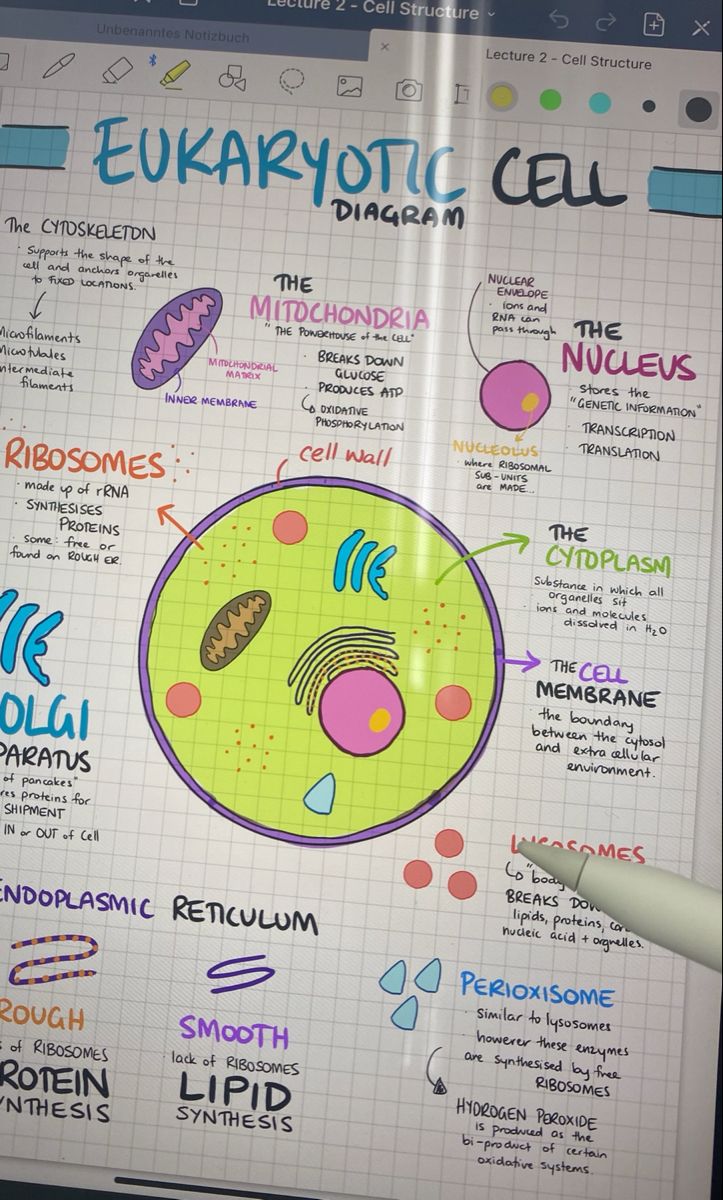 Lecture 2 - Cell Structure
Unbenanntes Notizbuch
Lecture 2 - Cell Structure
EUKARYOTIC CELL
DIAGRAM
The CYTOSKELETON
· Supports the shape of the
cell and anchors organelles
to FIXED LOCATIONS.
Microfilaments
filaments
THE
MITOCHONDRIA
"THE POWERHOUSE of the CELL"
· BREAKS DOWN
GLUCOSE
· PRODUCES ATP
OXIDATIVE
PHOSPHORYLATION
MITOCHONDRIAL
MATRIX
INNER MEMBRANE
NUCLEAR
ENVELOPE
· ions and
RNA can
pass through
THE
NUCLEUS
· stores the
"GENETIC INFORMATION"
· TRANSCRIPTION
· TRANSLATION
NUCLEOLUS
· where RIBOSOMAL
SUB-UNITS
are MADE...
RIBOSOMES
· made up of rRNA
· SYNTHESISES
PROTEINS
· some: free or
found on ROUGH ER.
cell wall
THE
CYTOPLASM
Substance in which all
organelles sit
· ions and molecules
dissolved in H₂O
THE CELL
MEMBRANE
· the boundary
between the cytosol
and extra cellular
environment.
OLGI
PARATUS
of pancakes"
res proteins for
SHIPMENT
IN or OUT of Cell
LYSOSOMES
"body
BREAKS DOW
lipids, proteins,
nucleic acid + orgnelles.
ENDOPLASMIC RETICULUM
ROUGH
of RIBOSOMES
ROTEIN
YNTHESIS
SMOOTH
· lack of RIBOSOMES
LIPID
SYNTHESIS
PERIOXISOME
· similar to lysosomes
· however these enzymes
are synthesised by free
RIBOSOMES
HYDROGEN PEROXIDE
is produced as the
bi-product of certain
oxidative systems.